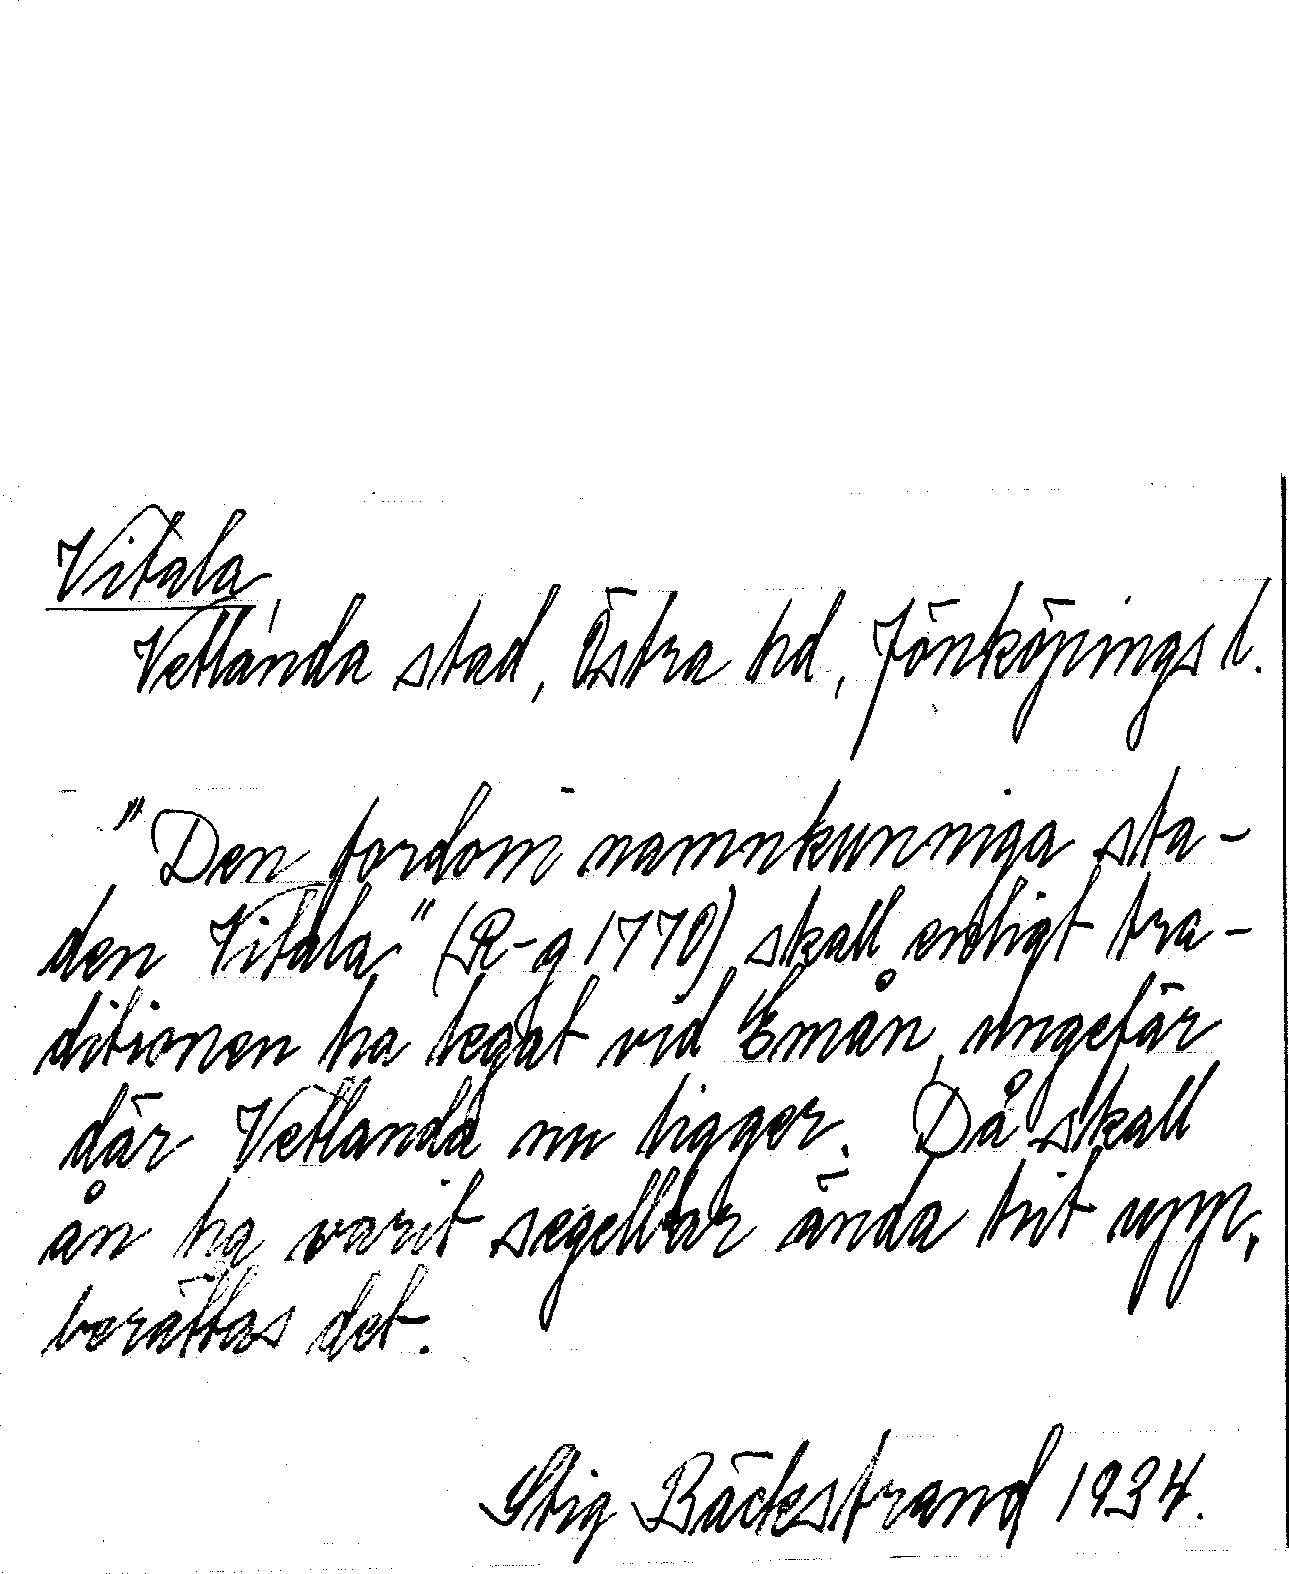 Vitala,
Vetlanda stad, Östra hd, Jönköpings l.
"Den fordom namnkunniga sta-
den Vitala" (R-g 1770) skall enligt tra-
ditionen ha legat vid Emån, ungefär
där Vetlanda nu ligger. Då skall
ån ha varit segelbar ända hit upp,
berättas det.
Stig Bäckstrand 1934.